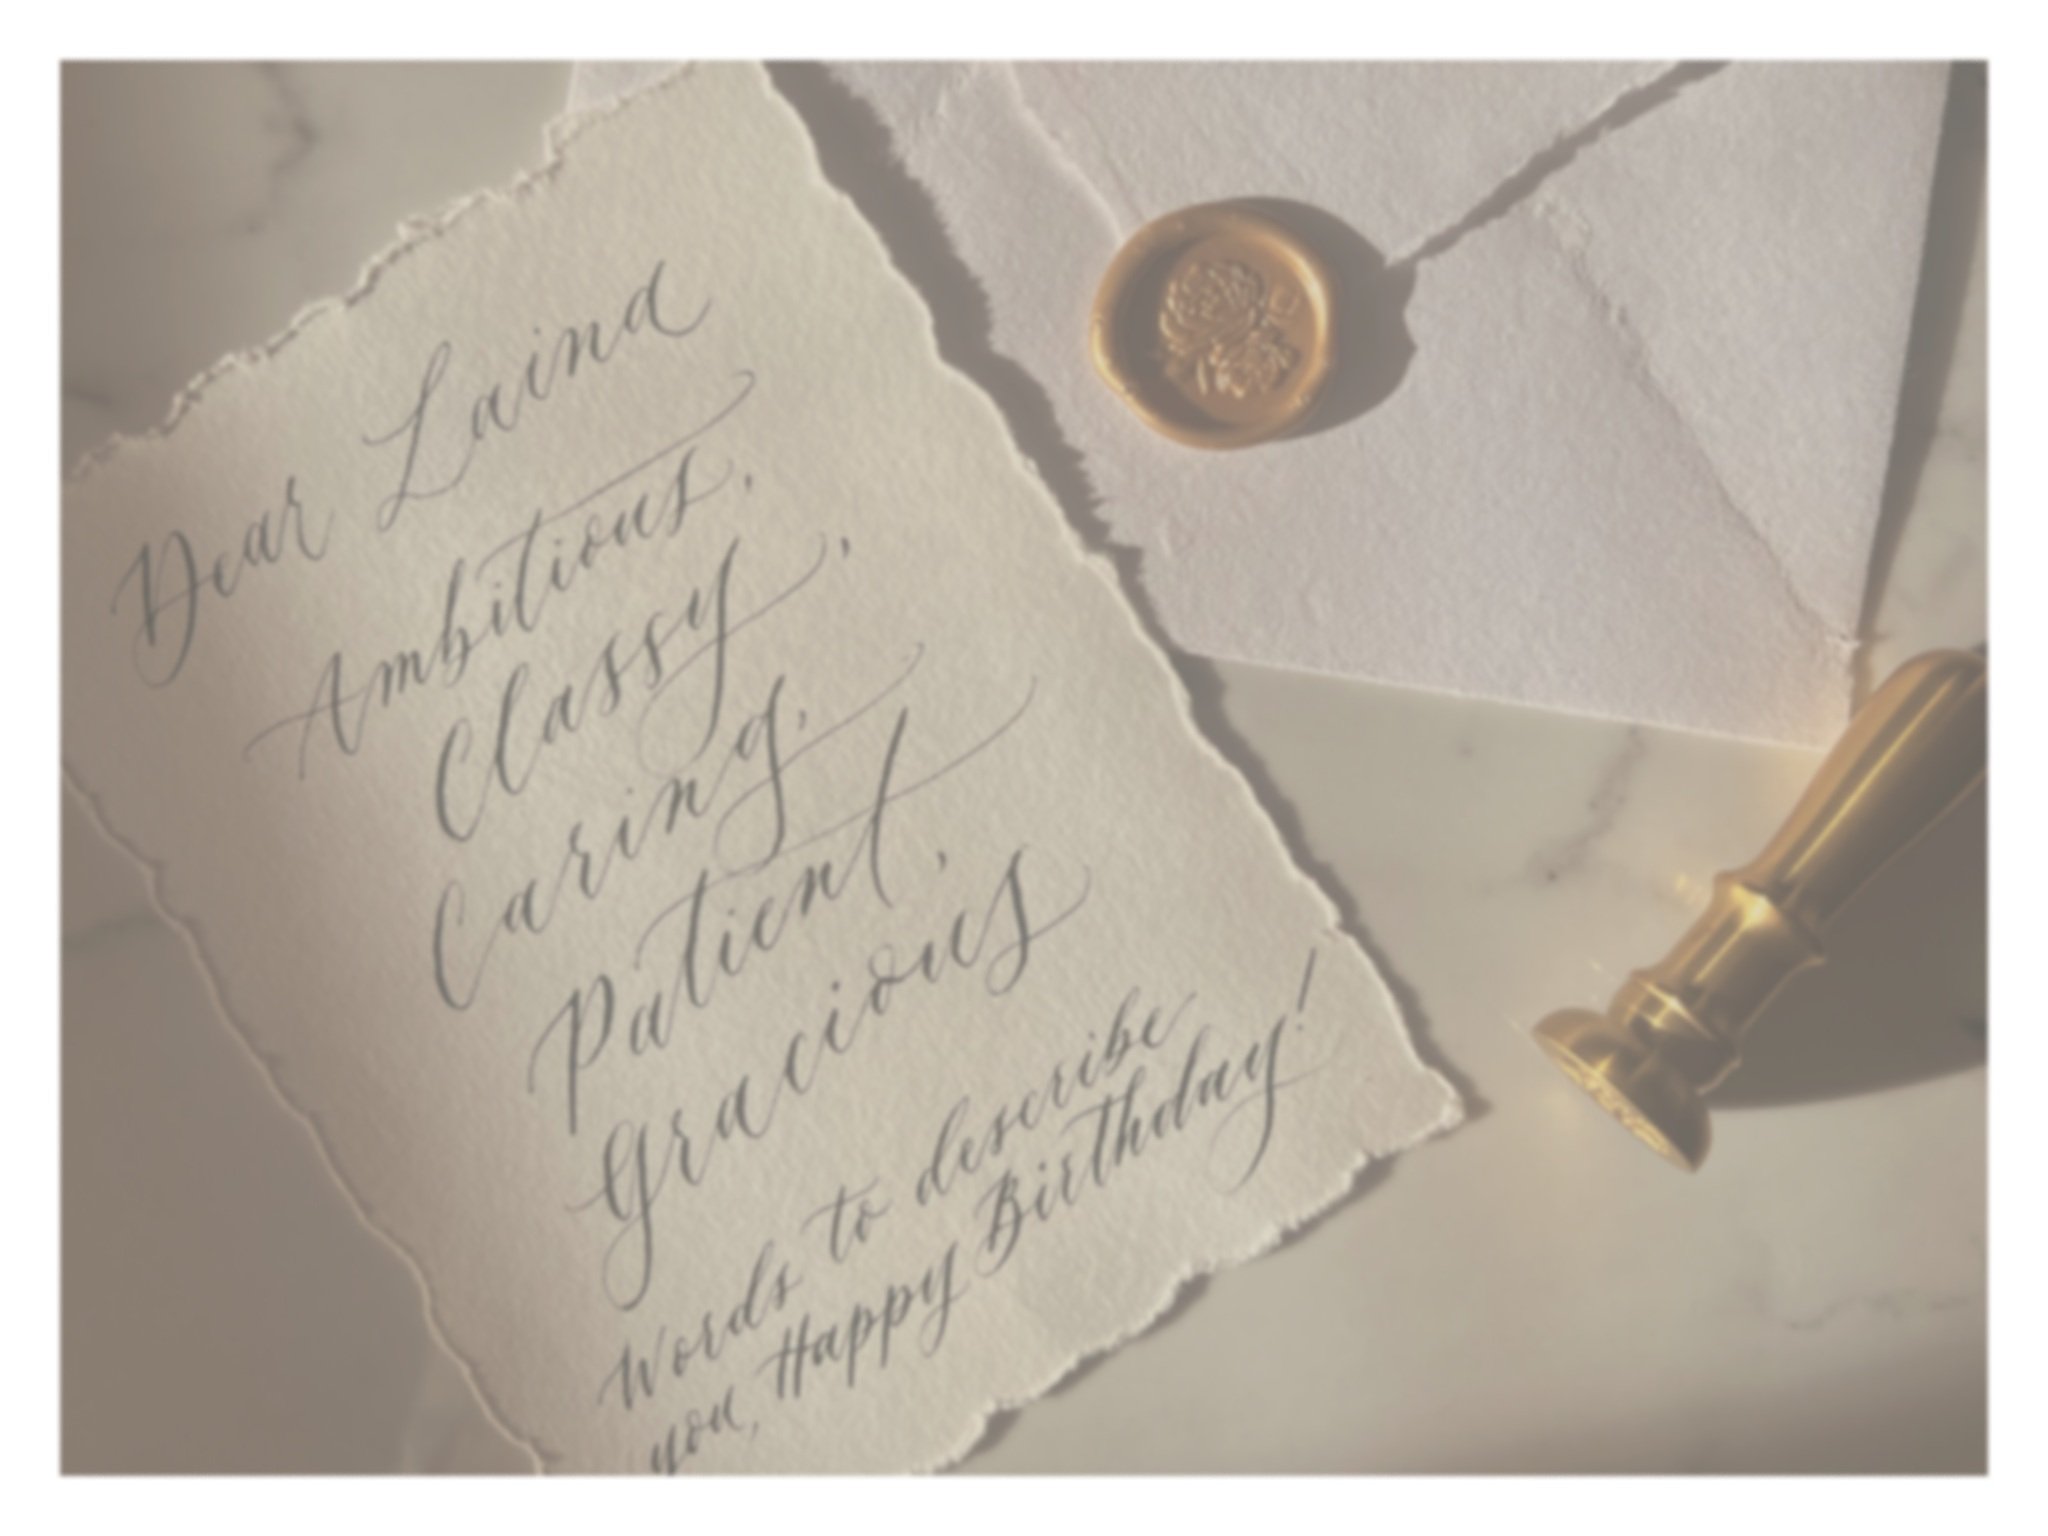 Dear Laina
Ambitious,
Classy,
Caring,
Patient,
Gracious
Words to describe
you, Happy Birthday!